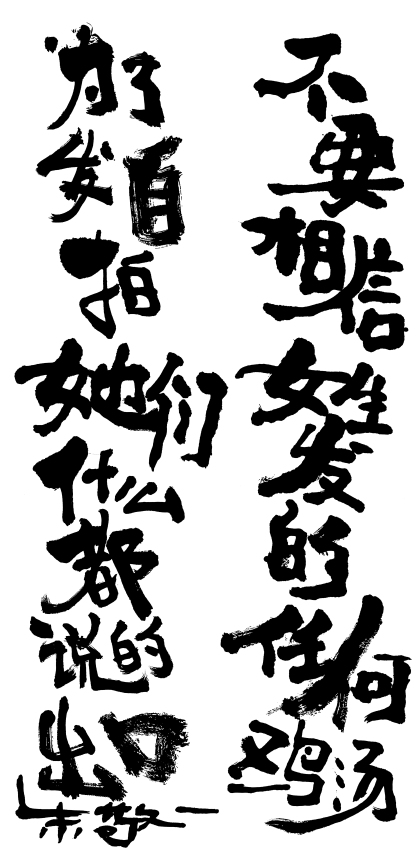 不要相信女生发的任何鸡汤
为了发自拍她们什么都说的出口
朱敬一